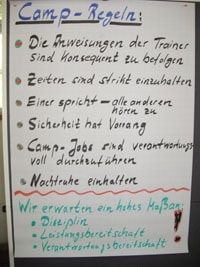 Camp-Regeln:
• Die Anweisungen der Trainer
sind konsequent zu befolgen
• Zeiten sind strikt einzuhalten
• Einer spricht – alle anderen
hören zu
• Sicherheit hat Vorrang
• Camp-Jobs sind verantwortungs-
voll durchzuführen
• Nachtruhe einhalten
Wir erwarten ein hohes Maß an:
• Disciplin
• Leistungsbereitschaft
• Verantwortungsbereitschaft
!